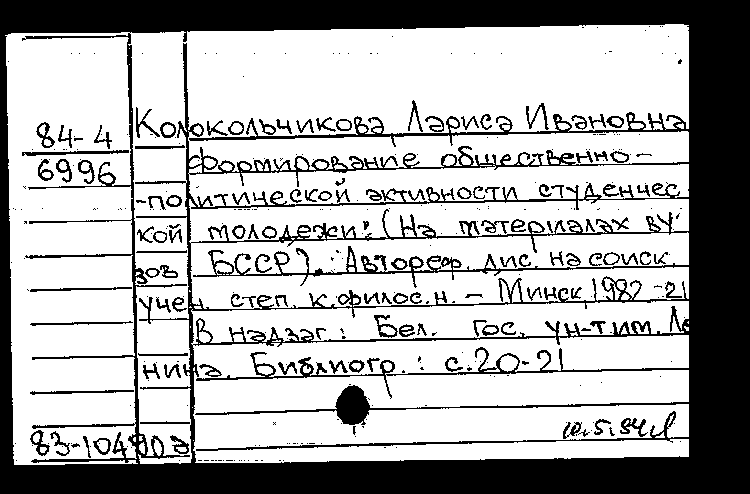 84-4 Колокольчикова, Лариса Ивановна
6996 Формирование общественно-
-политической активности студенчес
кой молодежи: (На материалах ву
зов БССР). : Автореф. дис. на соиск.
учен. степ. к.филос.н. - Минск, 1982 -21
В надзаг.: Бел. Гос. ун-т им. Ле
нина. Библиогр.: с.20-21
83-10490а